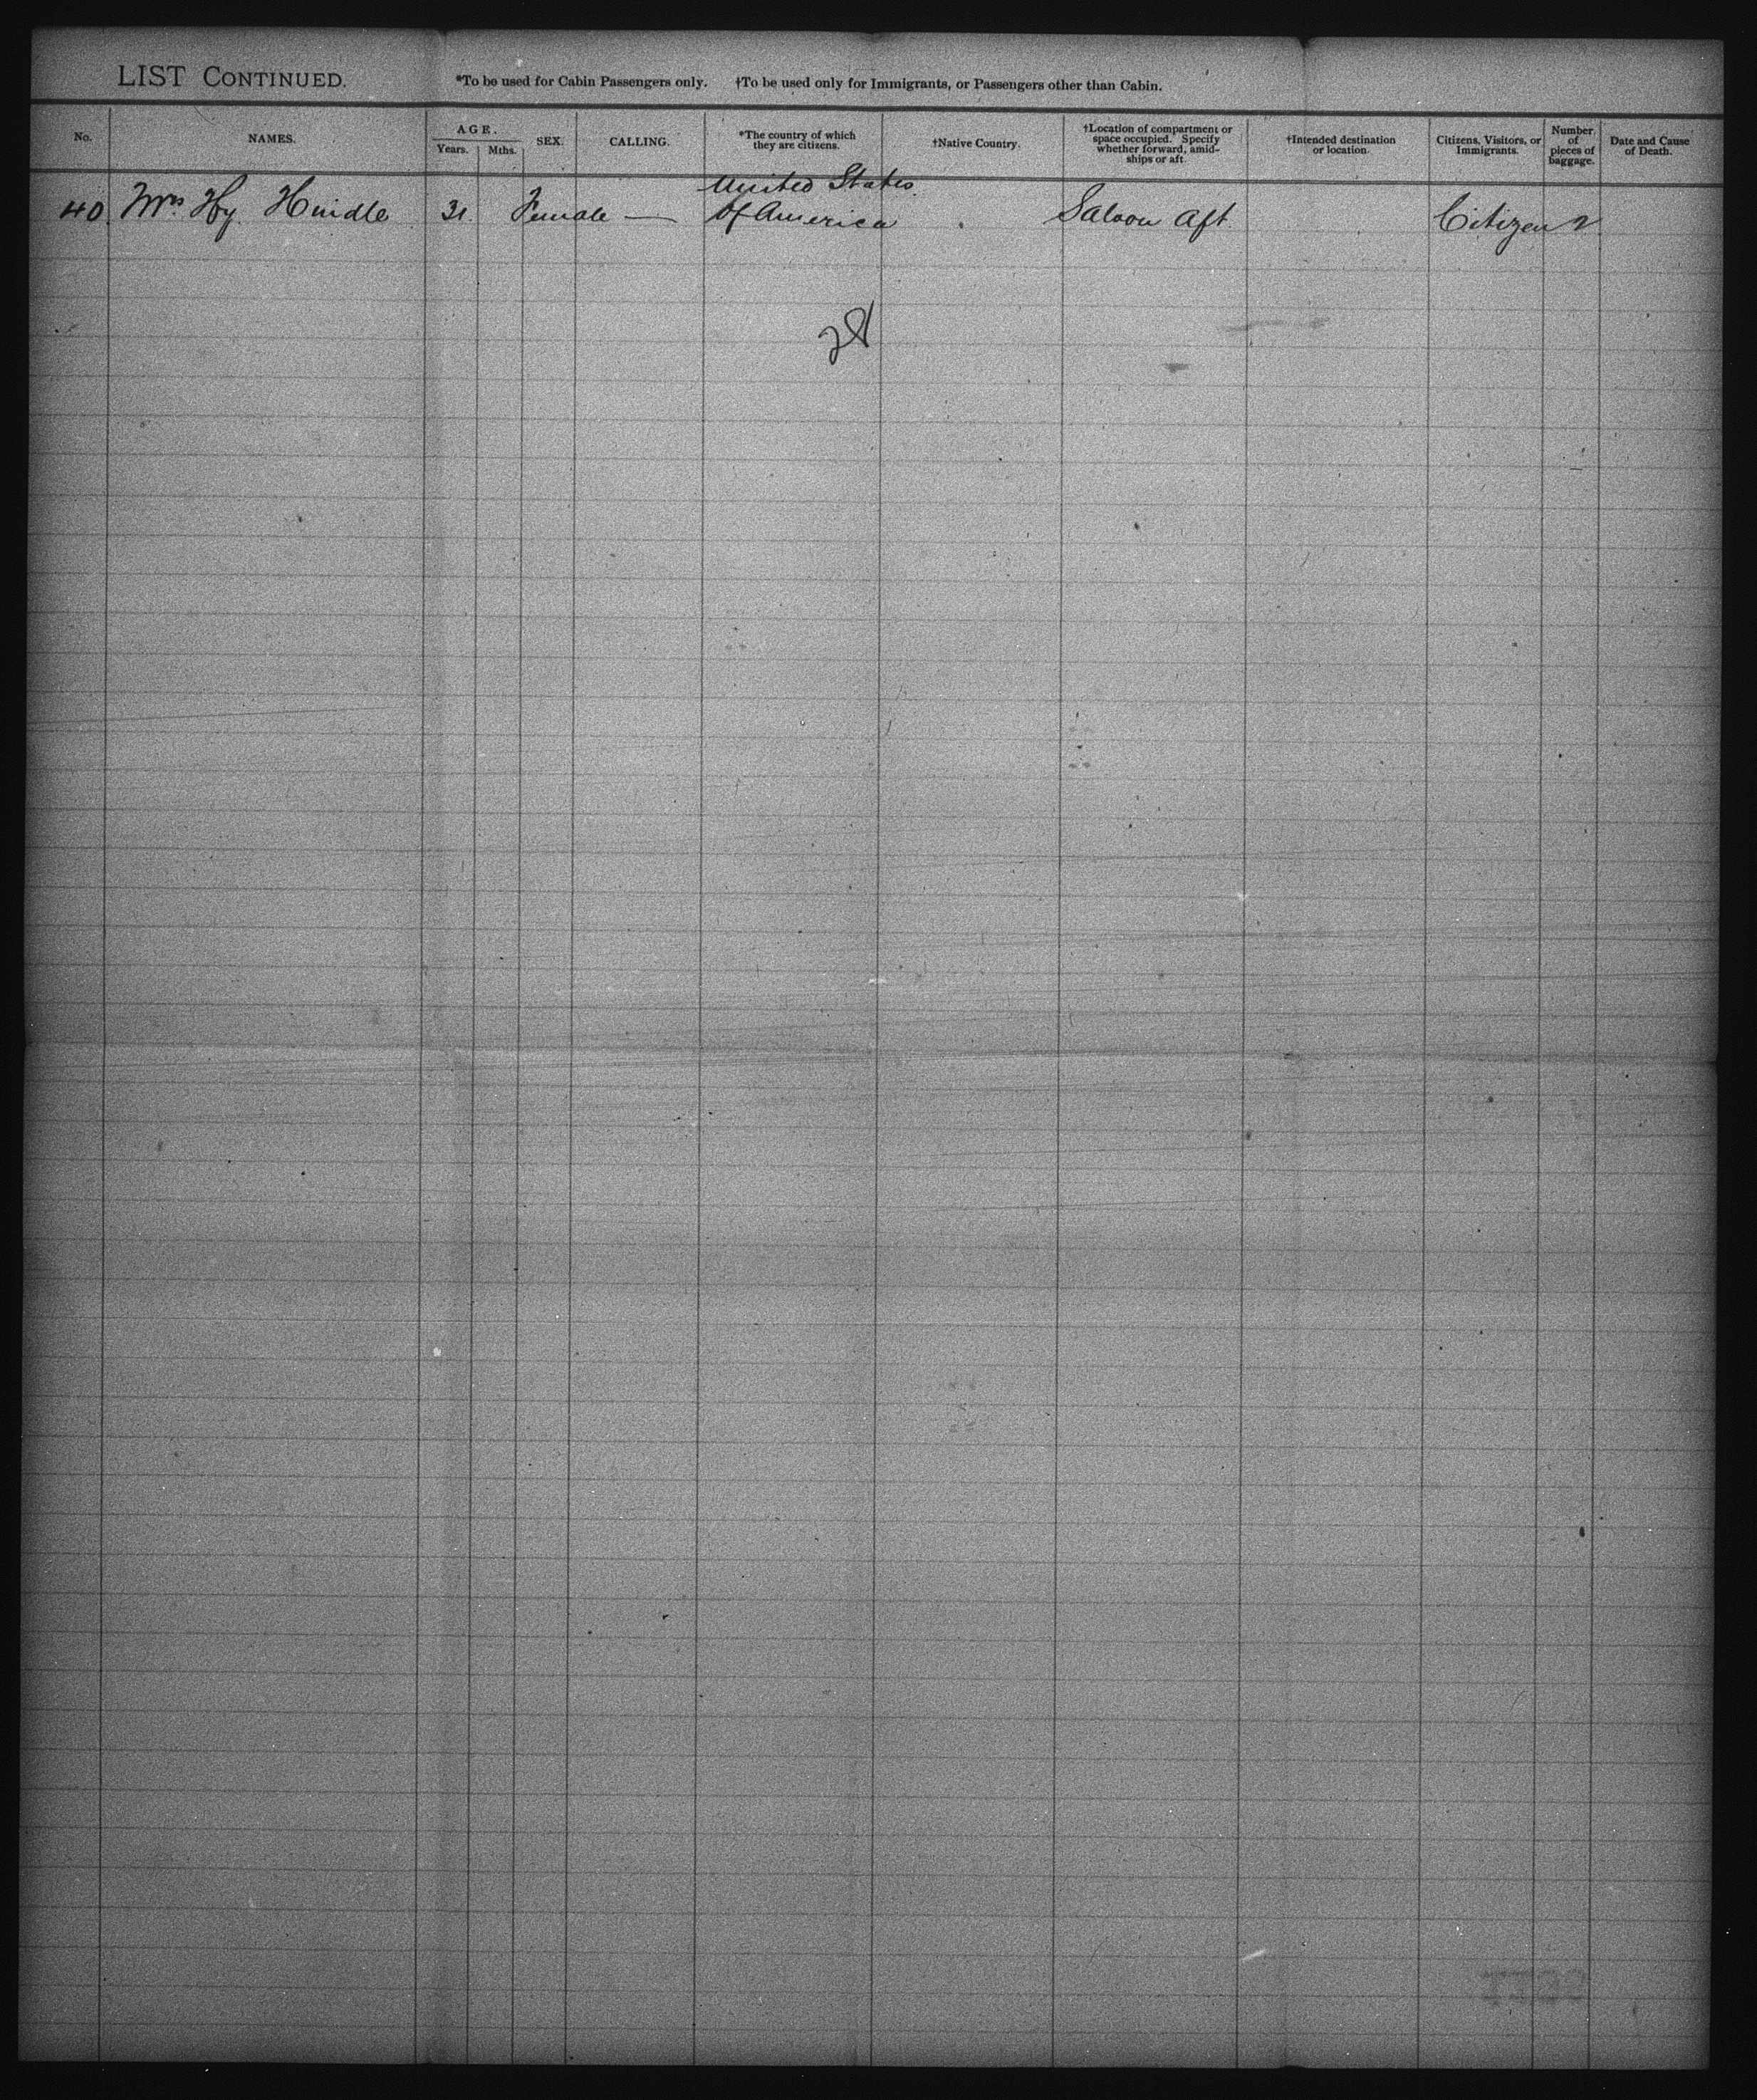 LIST CONTINUED. *To be used for Cabin Passengers only. †To be used only for Immigrants, or Passengers other than Cabin.
No. NAMES. AGE. Years. Mths. SEX. CALLING. *The country of which they are citizens. †Native Country. †Location of compartment or space occupied. Specify whether forward, amidships or aft. †Intended destination or location. Citizens, Visitors, or Immigrants. Number of pieces of baggage. Date and Cause of Death.
United States
40 Mrs Hy Hindle 31. Female — Of America Saloon Aft. Citizen 2